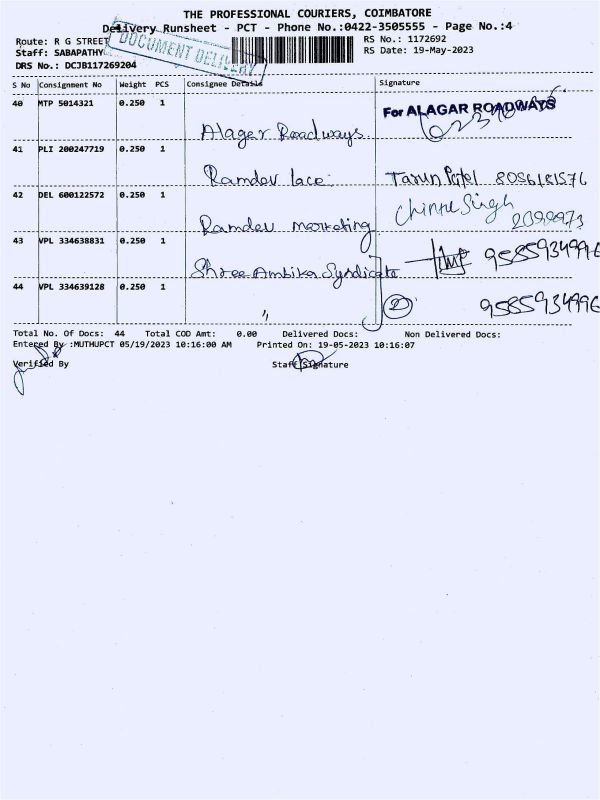 THE PROFESSIONAL COURIERS, COIMBATORE
Delivery Runsheet - PCT - Phone No.:0422-3505555 - Page No.:4
Route: R G STREET
RS No.: 1172692
Staff: SABAPATHY
RS Date: 19-May-2023
DOCUMENT DELIVERY
DRS No.: DCJB117269204
S No Consignment No Weight PCS Consignee Details Signature
40 MTP 5014321 0.250 1
For ALAGAR ROADWAYS
Alager Roadways
41 PLI 200247719 0.250 1
Ramdev lace Tarun Patel 8056181576
42 DEL 600122572 0.250 1
Ramdev marketing
43 VPL 334638831 0.250 1
Shree Ambika Syndicate 9585934996
44 VPL 334639128 0.250 1
" 2 9585934996
Total No. Of Docs: 44 Total COD Amt: 0.00 Delivered Docs: Non Delivered Docs:
Entered By :MUTHUPCT 05/19/2023 10:16:00 AM Printed On: 19-05-2023 10:16:07
Verified By Staff Signature